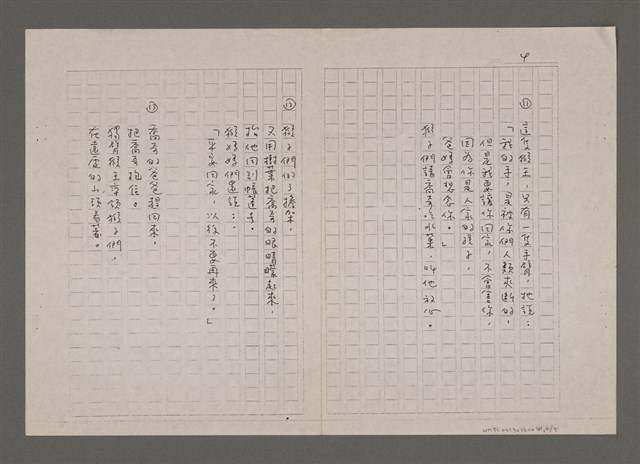 4
⑪ 這隻猴王,只有一隻手臂,牠說:
「我的手,是被你們人類夾斷的,
但是我要讓你回家,不會害你,
因為你是人家的孩子,
爸媽會想念你。」
猴子們請喬哥吃水菓,叫他放心。
⑫ 猴子們做了擔架,
又用樹葉把喬哥的眼睛矇起來,
抬他回到帳蓬子。
猴媽媽們還說:
「平安回家,以後不要再來了。」
⑬ 喬哥的爸爸趕回來,
把喬哥抱住。
獨臂猴王帶領猴子們,
在遠處的山頭看著。